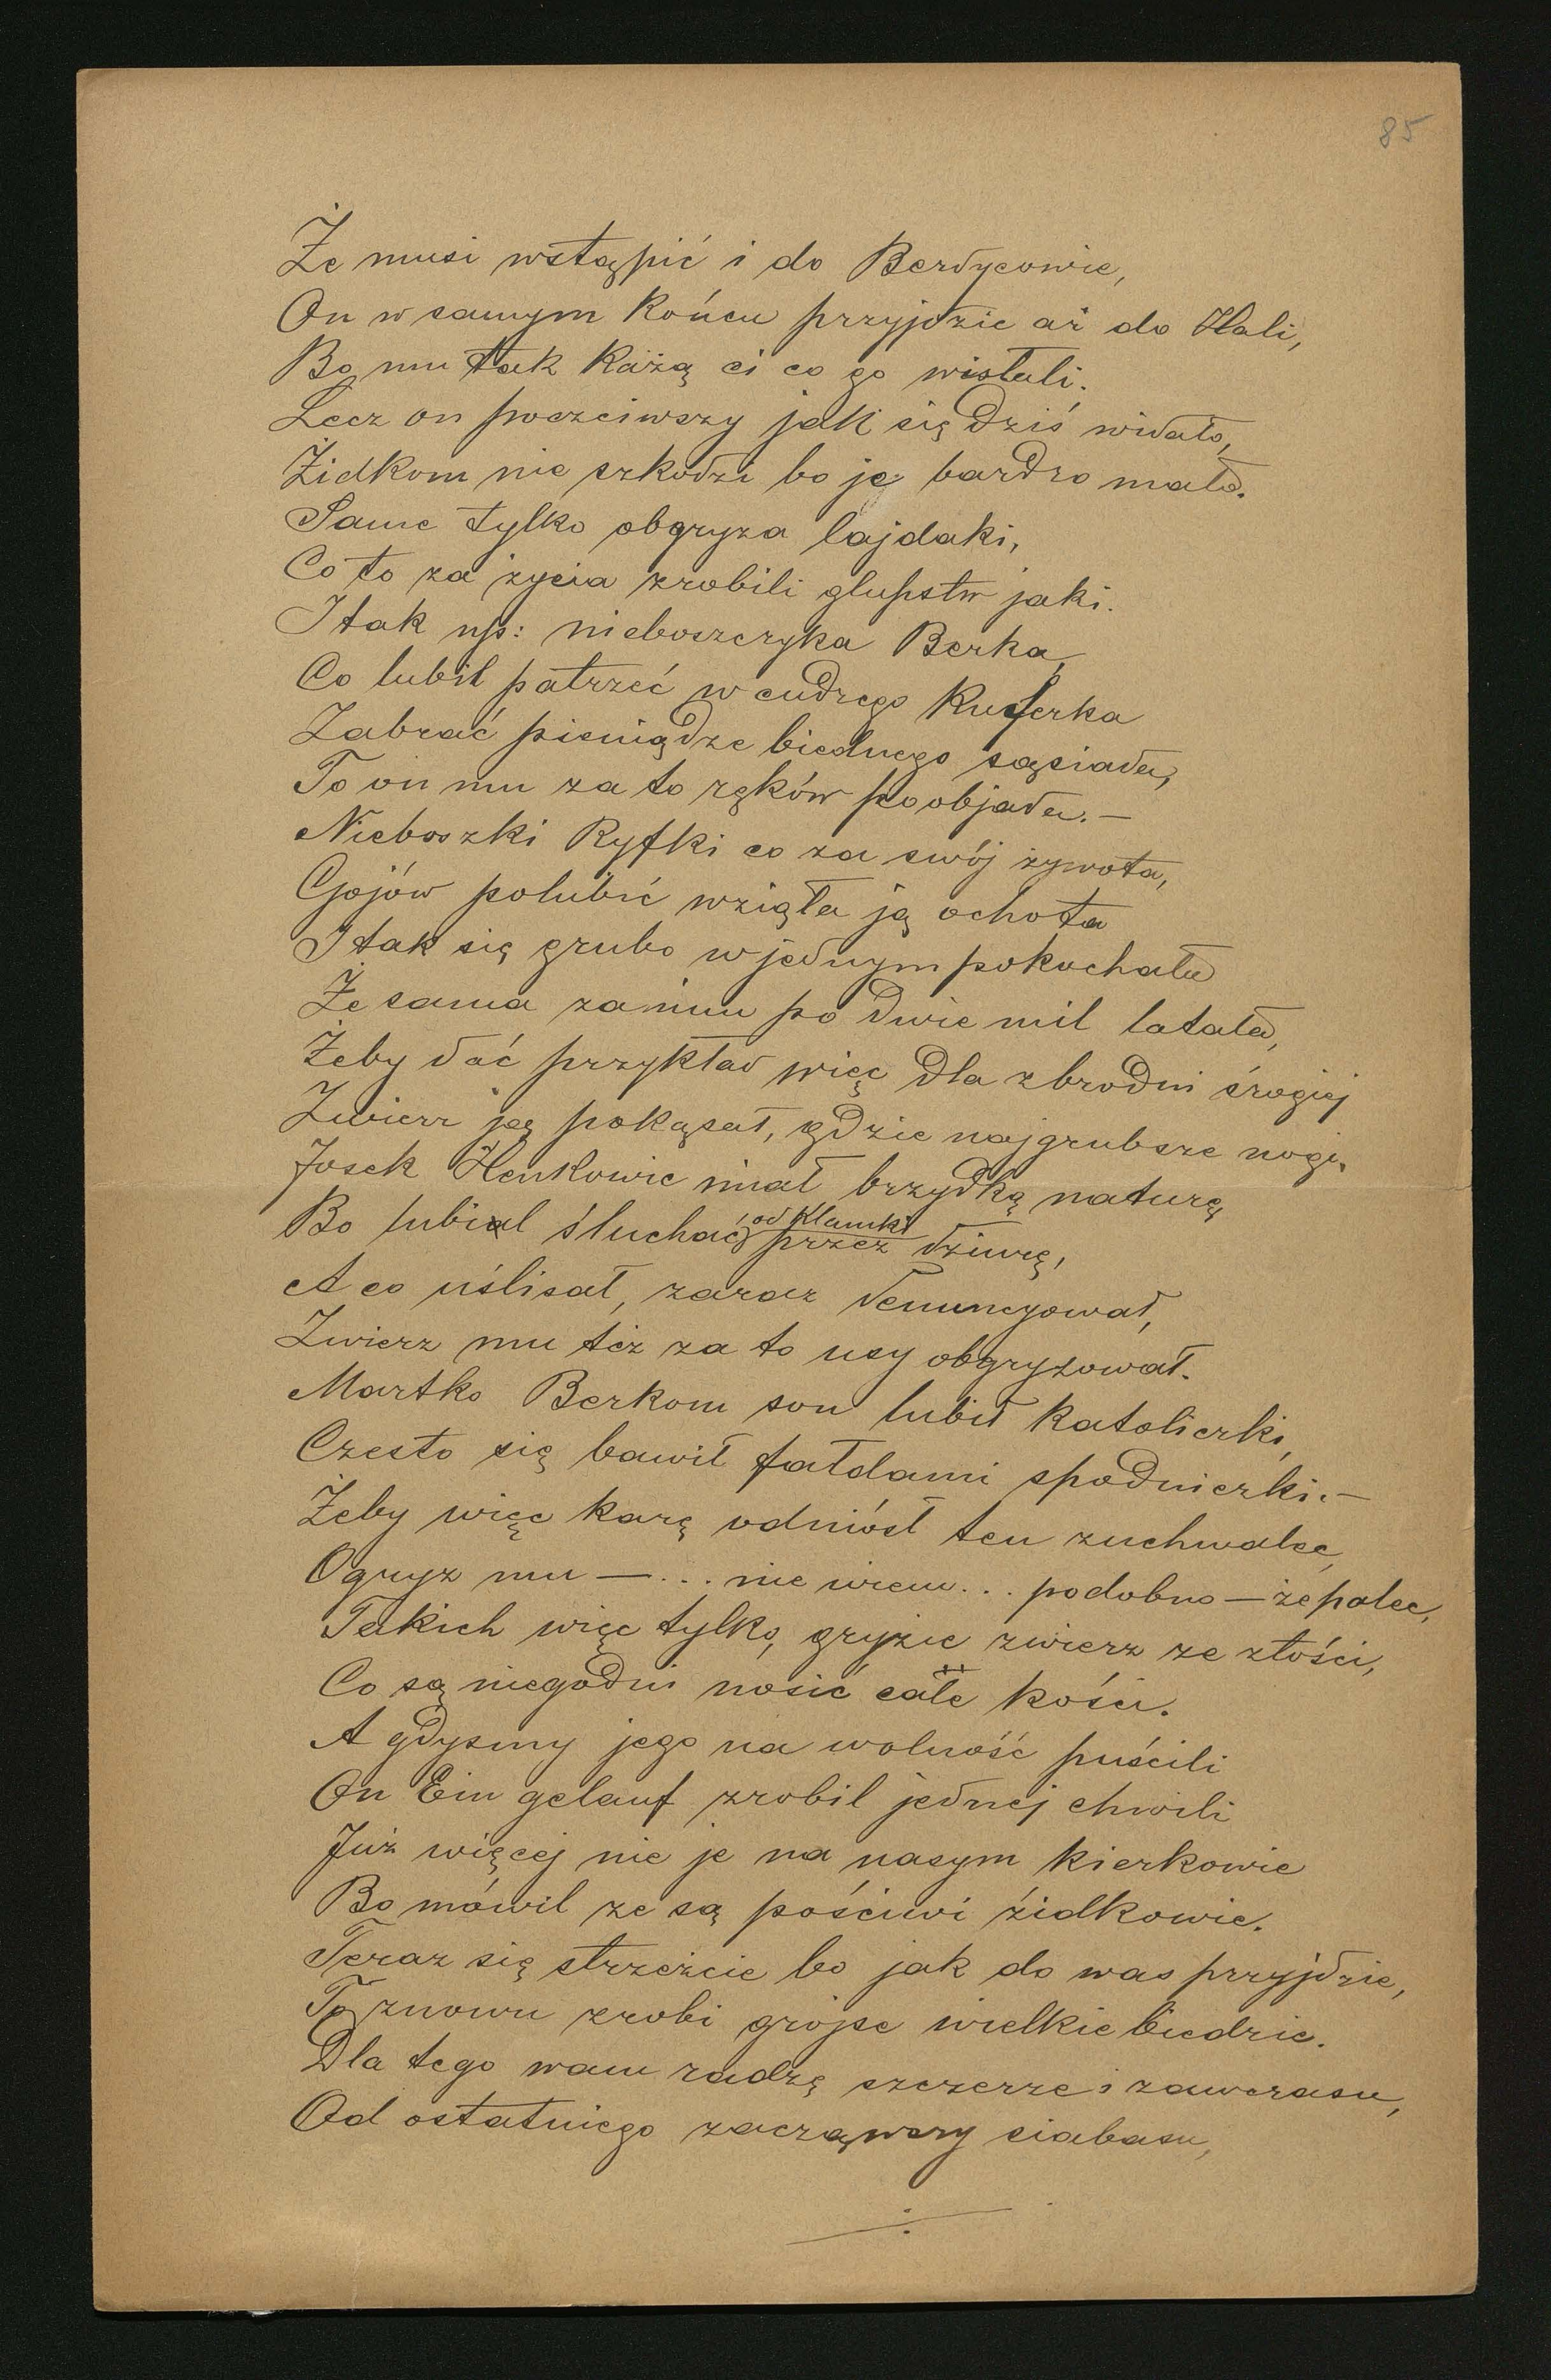 85
Że musi wstąpić i do Berdycowie,
On w samym końcu przyjdzie aż do Hali,
Bo mu tak każą ci co go wistali.
Lecz on poczciwszy jak się dziś widało,
Żidkom nie szkodzi bo je bardzo mało.
Same tylko obgryza łajdaki,
Co to za życia zrobili glupstw jaki.
I tak np: nieboszczyka Berka,
Co lubił patrzeć w cudzego kuferka
Zabrać pieniądze biednego sąsiada,
To on mu za to ręków poobjada. —
Nieboszki Ryfki co za swój żywota,
Gojów polubić wzięła ją ochota
I tak się grubo w jednym pokochała
Że sama za nim po dwie mil latała,
Żeby dać przykład więc dla zbrodni srogiej
Zwierz ją pokąsał, gdzie najgrubsze nogi.
Josek Henkowic miał brzydką naturę,
Bo lubial słuchać od klamki przez dziurę,
A co uślisał, zaraz denuncyował,
Zwierz mu też za to usy obgryzował.
Martko Berkom son lubił katoliczki,
Czesto się bawił fałdami spodniczki. —
Żeby więc karę odniósł ten zuchwalec,
Ogryz mu — ... nie wiem... podobno — że palec,
Takich więc tylko, gryzie zwierz ze złości,
Co są niegodni nosić całe kości.
A gdysmy jego na wolność puścili
On Ein gelauf zrobil jednej chwili
Już więcej nie je na nasym kierkowie
Bo mówil ze są pościwi żidkowie.
Teraz się strzeżcie bo jak do was przyjdzie,
To znowu zrobi grojse wielkie biedzie.
Dla tego wam radzę szczerze i zawczasu,
Od ostatniego zacząwszy siabasu,